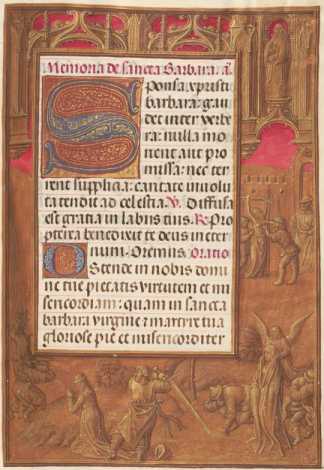 Memoria de sancta Barbara. añ
Sponsa xpristi
barbara: gau
det inter verbe
ra: nulla mo
rient aut pro
missa: nec ter
rent supplicia: cantate in voluta
tendit ad celestia. V. Diffusa
est gratia in labiis tuis. R. Pro
pterea benedixit te deus in eter
num. Oremus. Oratio
Ostende in nobis domi
ne tue pietatis virtutem et mi
sericordiam: quam in sancta
barbara virgine et martyre tua
gloriose pie et misericorditer